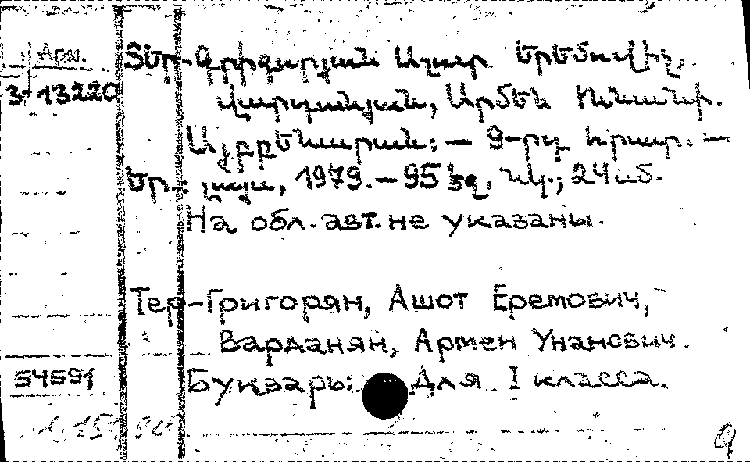 Арм.
Տեր-Գրիգորյան Աշոտ Երեմովիչ,
3-13220
Վարդանյան, Արմեն Ունանի.
Այբբենարան: — 9-րդ հրատ. —
Եր.: լույս, 1979. — 95 էջ, նկ.; 24 սմ.
На обл. авт. не указаны.
Тер-Григорян, Ашот Еремович,
Варданян, Армен Унанович.
54591
Букварь: Для I класса.